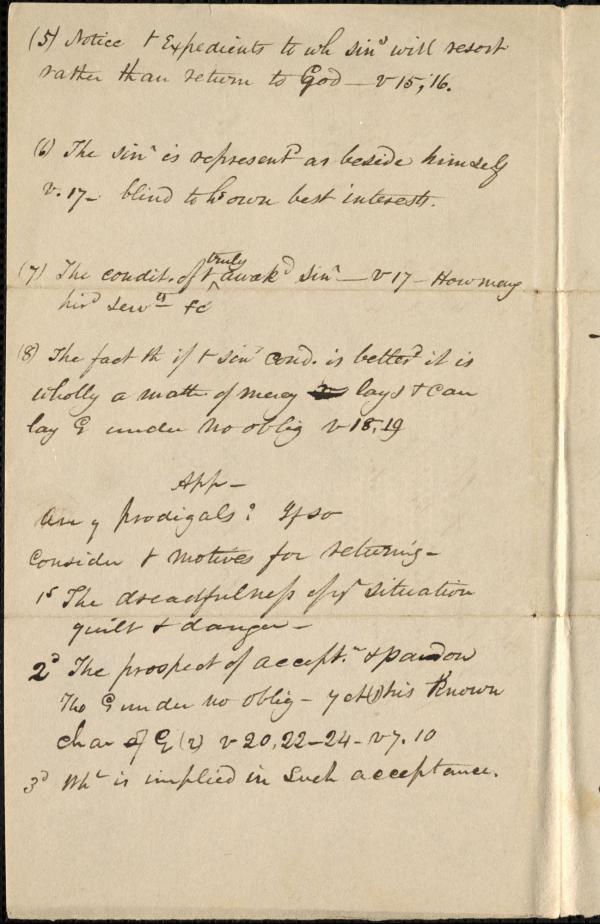 (5) Notice + Expedients to wh sinrs will resort
rather than return to God — v 15, 16.
(6) The sinr is represent.d as beside himself
v. 17 — blind to hs own best interests.
(7) The condit. of + truly awak.d sinr — v 17 — How many
hir.d serv.ts &c
(8) The fact th if + sinrs cond. is better.d it is
wholly a matt. of mercy lays & can
lay G under no oblig v 18, 19
App —
Are y prodigals? If so
Consider + motives for returning —
1st The dreadfulness of yr situation
guilt & danger —
2d The prospect of accept.n & pardon
Tho G under no oblig — yet (1) his known
char of G (2) v 20, 22–24 — v 7. 10
3d Wht is implied in such acceptance.